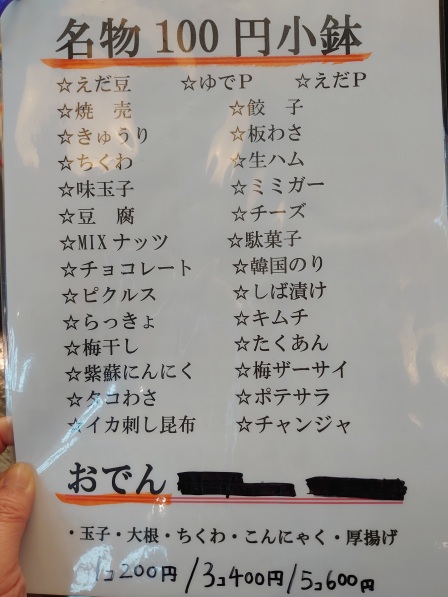 名物100円小鉢
☆えだ豆 ☆ゆでP ☆えだP
☆焼 売 ☆餃 子
☆きゅうり ☆板わさ
☆ちくわ ☆生ハム
☆味玉子 ☆ミミガー
☆豆 腐 ☆チーズ
☆MIXナッツ ☆駄菓子
☆チョコレート ☆韓国のり
☆ピクルス ☆しば漬け
☆らっきょ ☆キムチ
☆梅干し ☆たくあん
☆紫蘇にんにく ☆梅ザーサイ
☆タコわさ ☆ポテサラ
☆イカ刺し昆布 ☆チャンジャ
おでん
・玉子・大根・ちくわ・こんにゃく・厚揚げ
1コ200円/3コ400円/5コ600円